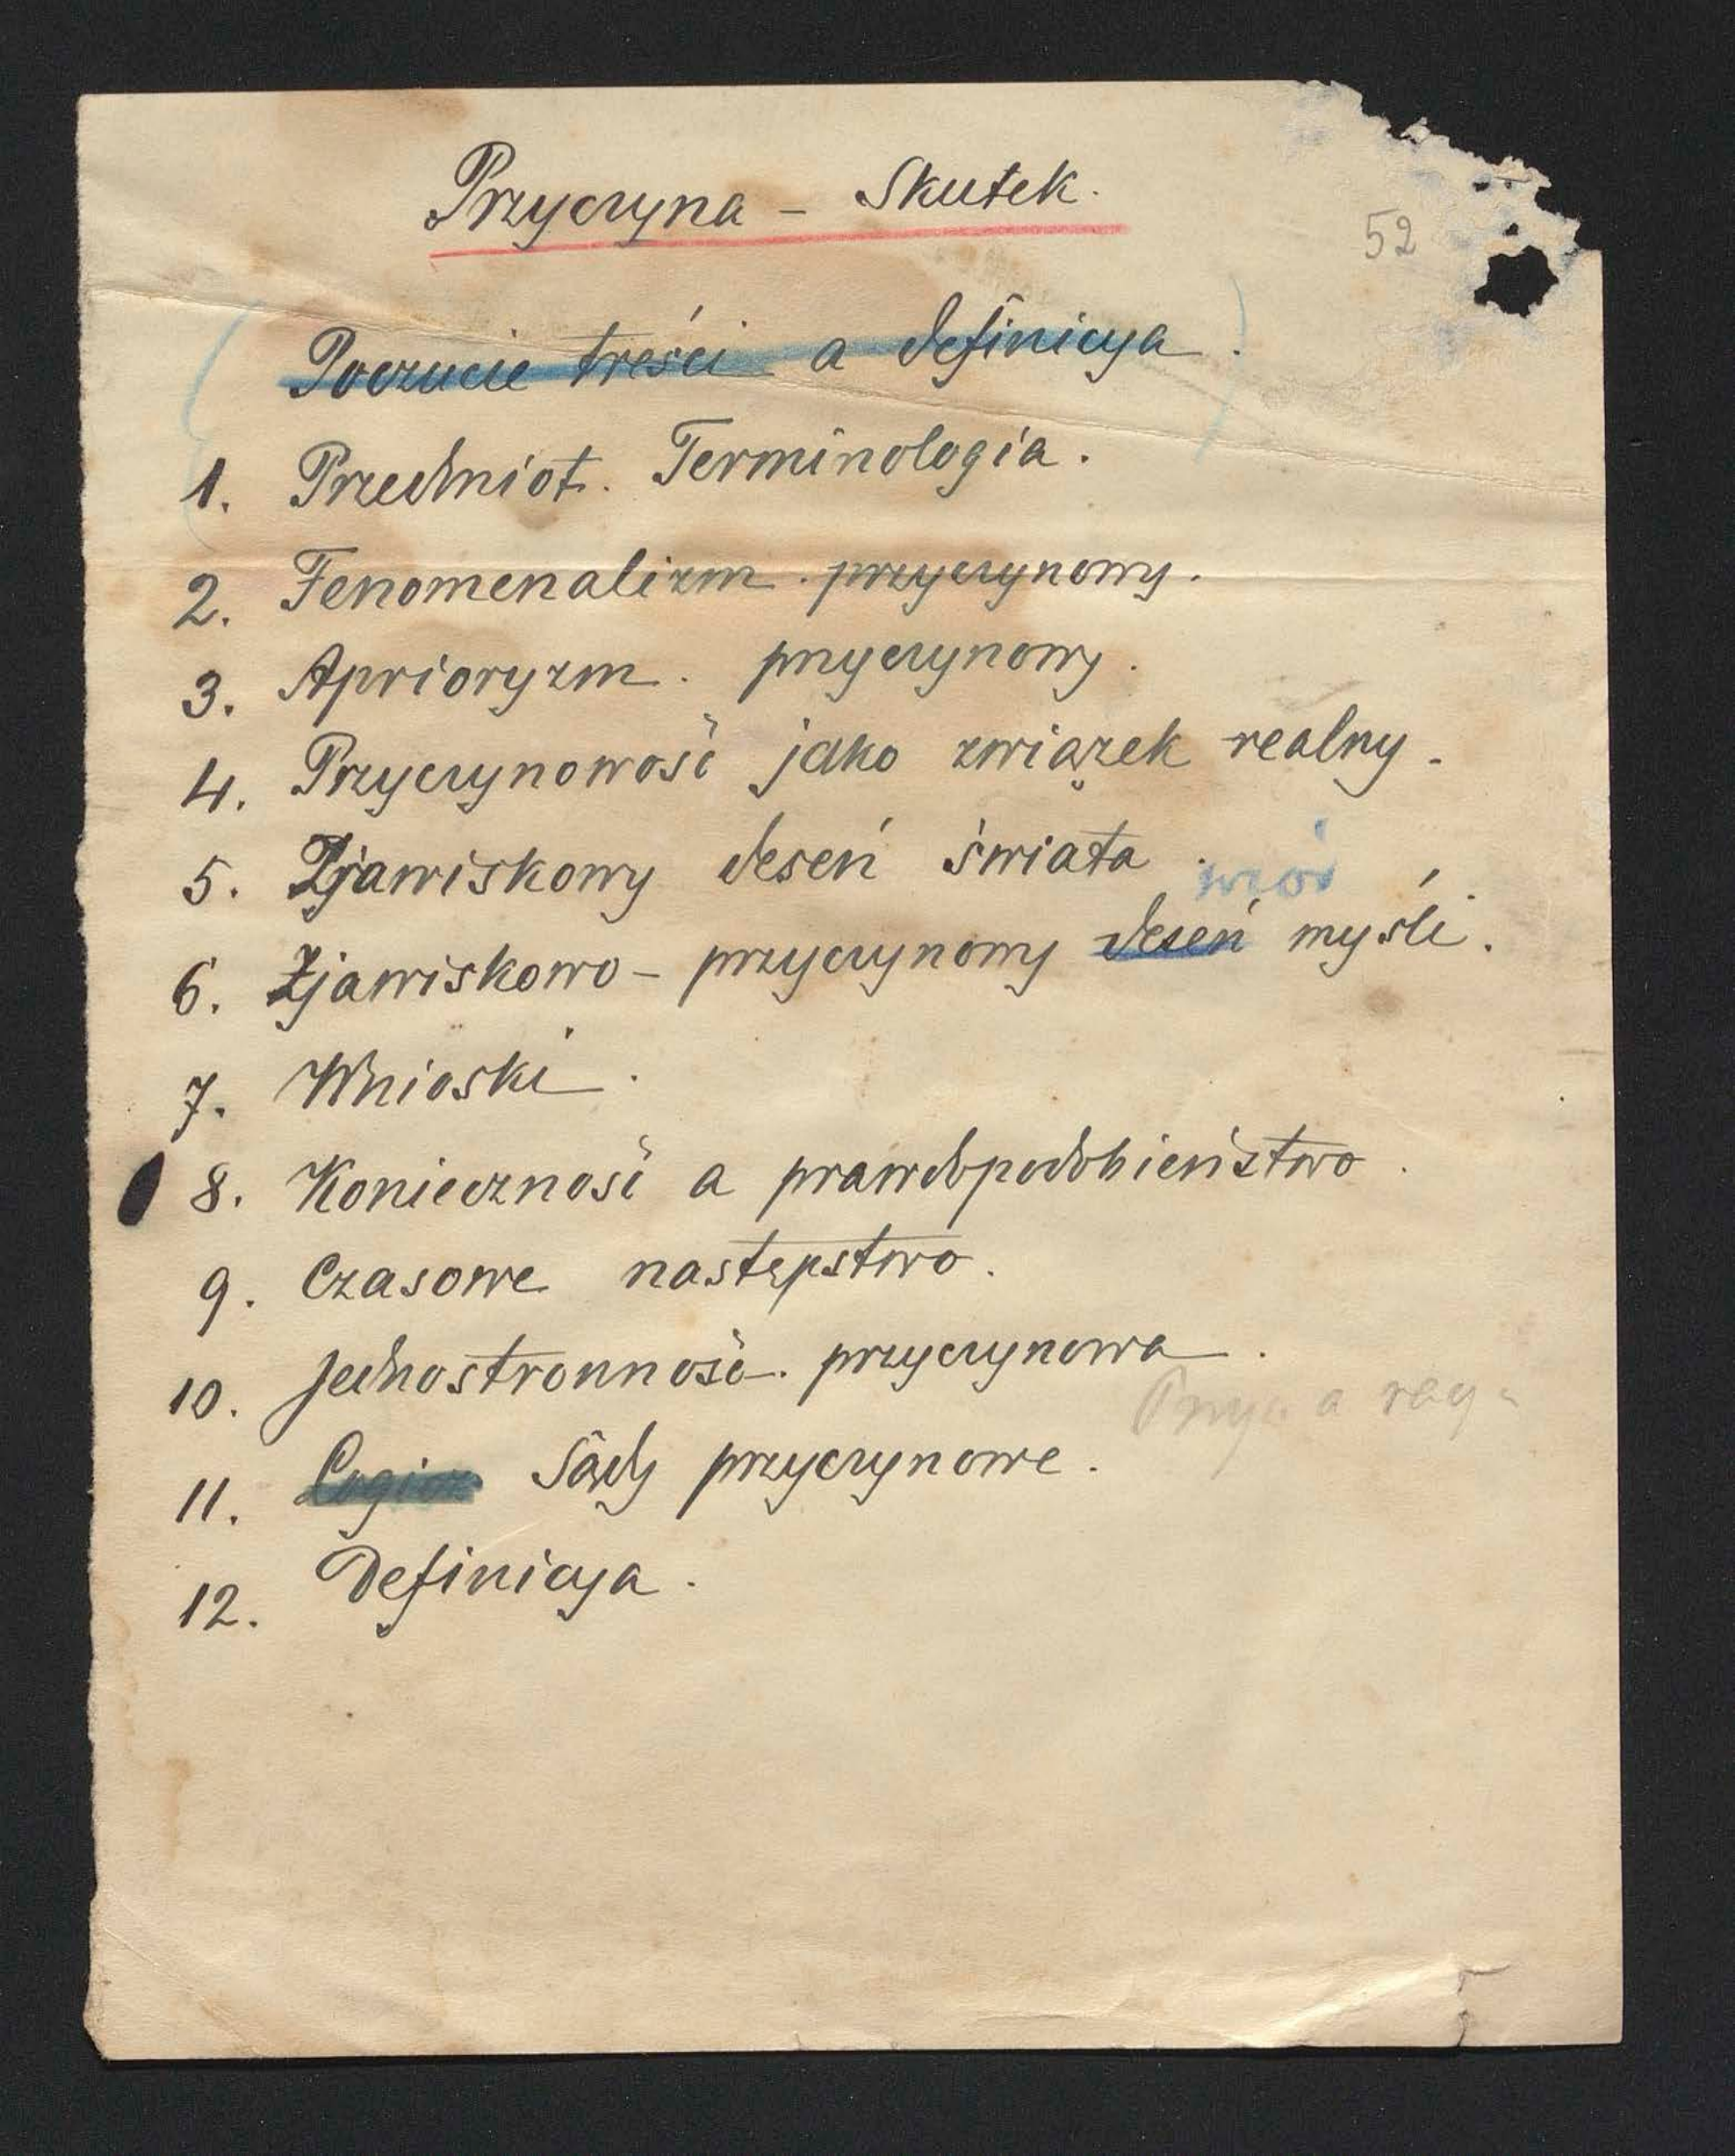 Przyczyna - Skutek.
52
Poczucie treści a definicya.
1. Przedmiot. Terminologia.
2. Fenomenalizm. przyczynowy.
3. Aprioryzm. przyczynowy.
4. Przyczynowość jako związek realny.
5. Zjawiskowy deseń świata.
wzór
6. Zjawiskowo - przyczynowy deseń myśli.
7. Wnioski.
8. Konieczność a prawdopodobieństwo.
9. Czasowe następstwo.
10. Jednostronność. przyczynowa.
a
11. Sądy przyczynowe.
12. Definicya.